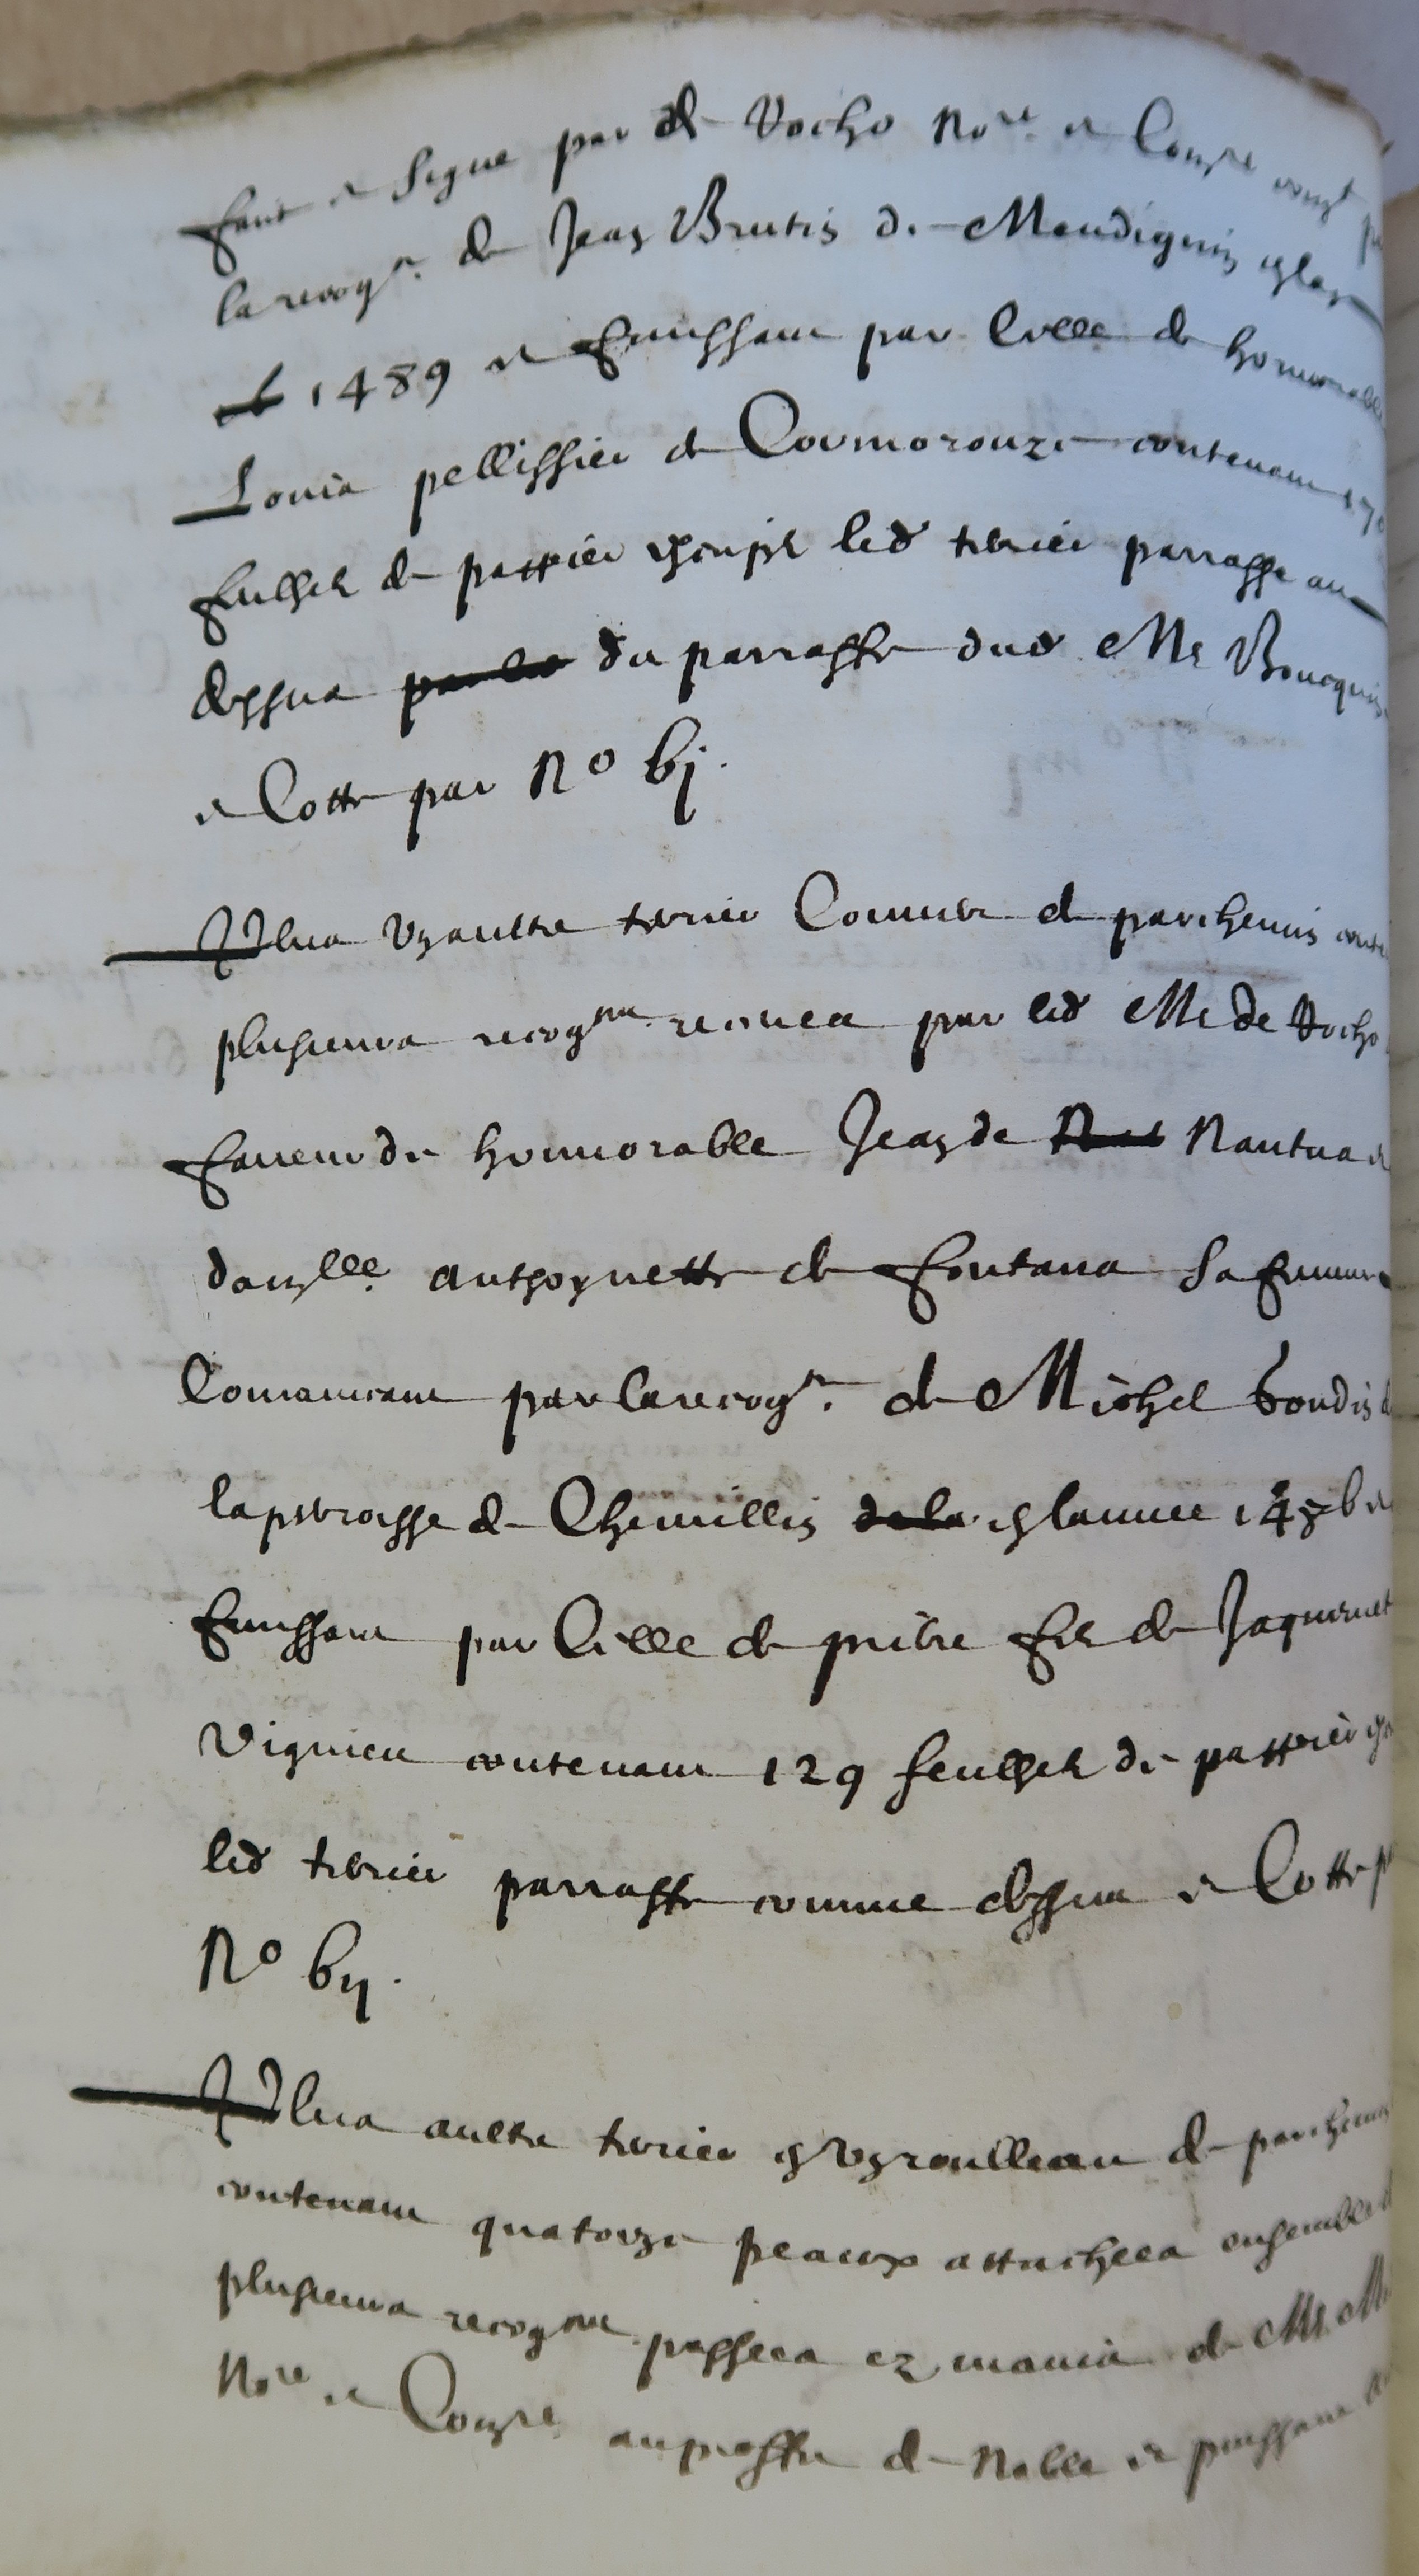 faict et signe par de Vocho no.re et
la recog.n de Jean Brutin de Mendignin
1489 et finissant par celle de honnorable
Louis pellissier de Cormorouze contenant 170
fulhet de pappier escript led terrier parraffe au
dessus par les du parraffe dud Me Boucquin
et Cotte par No bj.
Plus ung aultre terrier Couvert de parchemin
plusieurs recog.nces receues par led Me de Vocho
faveur de honnorable Jean de Nantua et
dam.lle anthoynette de fontana sa femme
Comancant par la recog.n de Michel bondin
la perroisse de Chemillin de la en lannee
finissant par Celle de pierre filz de Jaquemet
Vignieu contenant 129 feulhet de pappier
led terrier parraffe comme dessus et Cotte
No bij.
Plus aultre terrier en ung roulleau de parchemin
contenant quatorze peaux attachees ensemble
plusieurs recog.nces passees ez mains de Me
No.re et au proffit de Noble et puissant